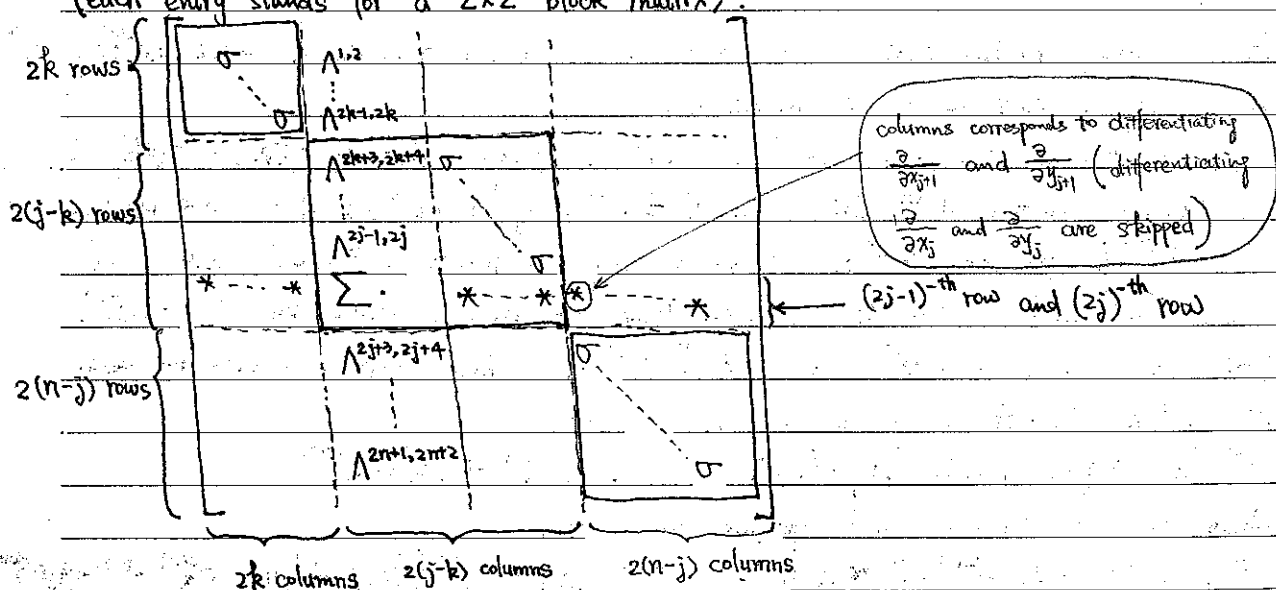 (each entry stands for a 2×2 block matrix).
2k rows
σ
σ
Λ^{1,2}
Λ^{2k-1,2k}
2(j-k) rows
Λ^{2k+3,2k+4}
σ
Λ^{2j-1,2j}
σ
* ---- * Σ. * ---- * * ---- *
2(n-j) rows
Λ^{2j+3,2j+4}
σ
Λ^{2n+1,2n+2}
σ
columns corresponds to differentiating
∂/∂x_{j+1} and ∂/∂y_{j+1} (differentiating
∂/∂x_j and ∂/∂y_j are skipped)
(2j-1)^{-th} row and (2j)^{-th} row
2k columns 2(j-k) columns 2(n-j) columns